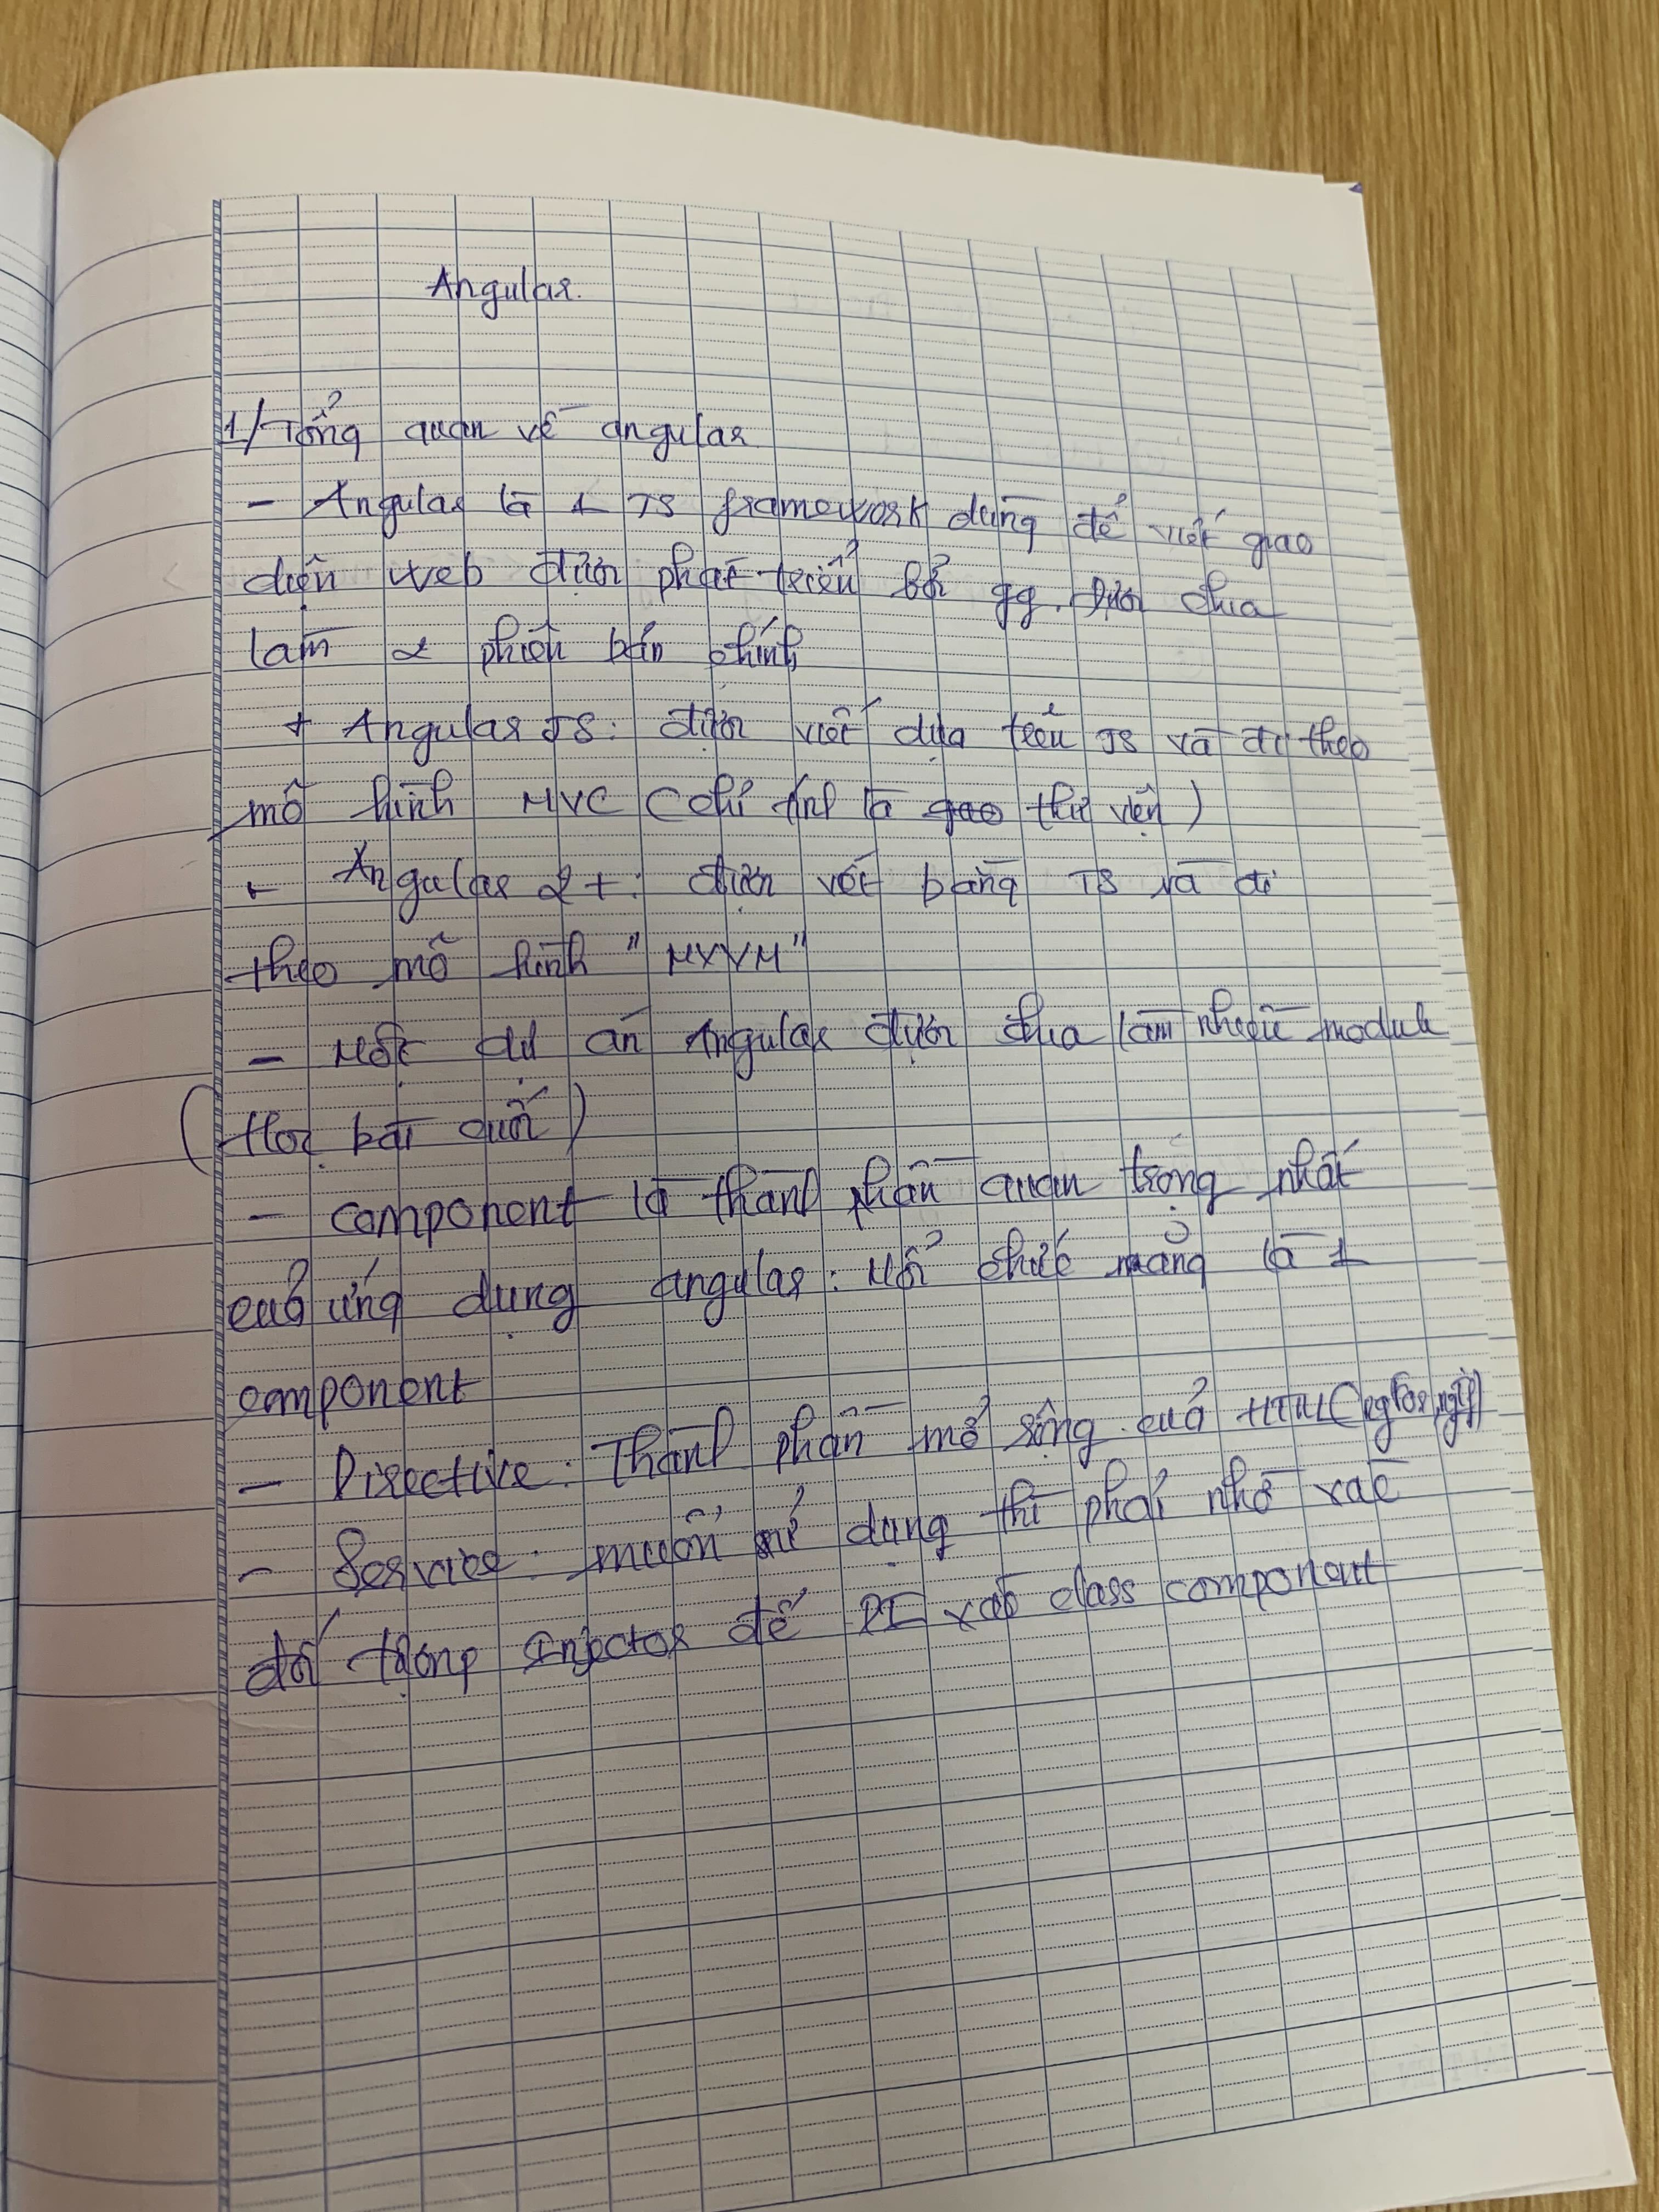 Angular.
1/ Tổng quan về angular
- Angular là 1 TS framework dùng để viết giao
diện web được phát triển bởi gg. Được chia
làm 2 phiên bản chính
+ Angular JS: được viết dựa trên JS và đi theo
mô hình MVC (chỉ tính là thư viện)
+ Angular 2+: được viết bằng TS và đi
theo mô hình "MVVM"
- Một dự án Angular được chia làm nhiều module
(Học bài cuối)
- component là thành phần quan trọng nhất
cuả ứng dụng angular: Mỗi chức năng là 1
component
- Directive: Thành phần mở rộng cuả HTML (ngfor, ngif)
- Service: muốn sử dụng thì phải nhờ vào
đối tượng Injector để DI vào class component